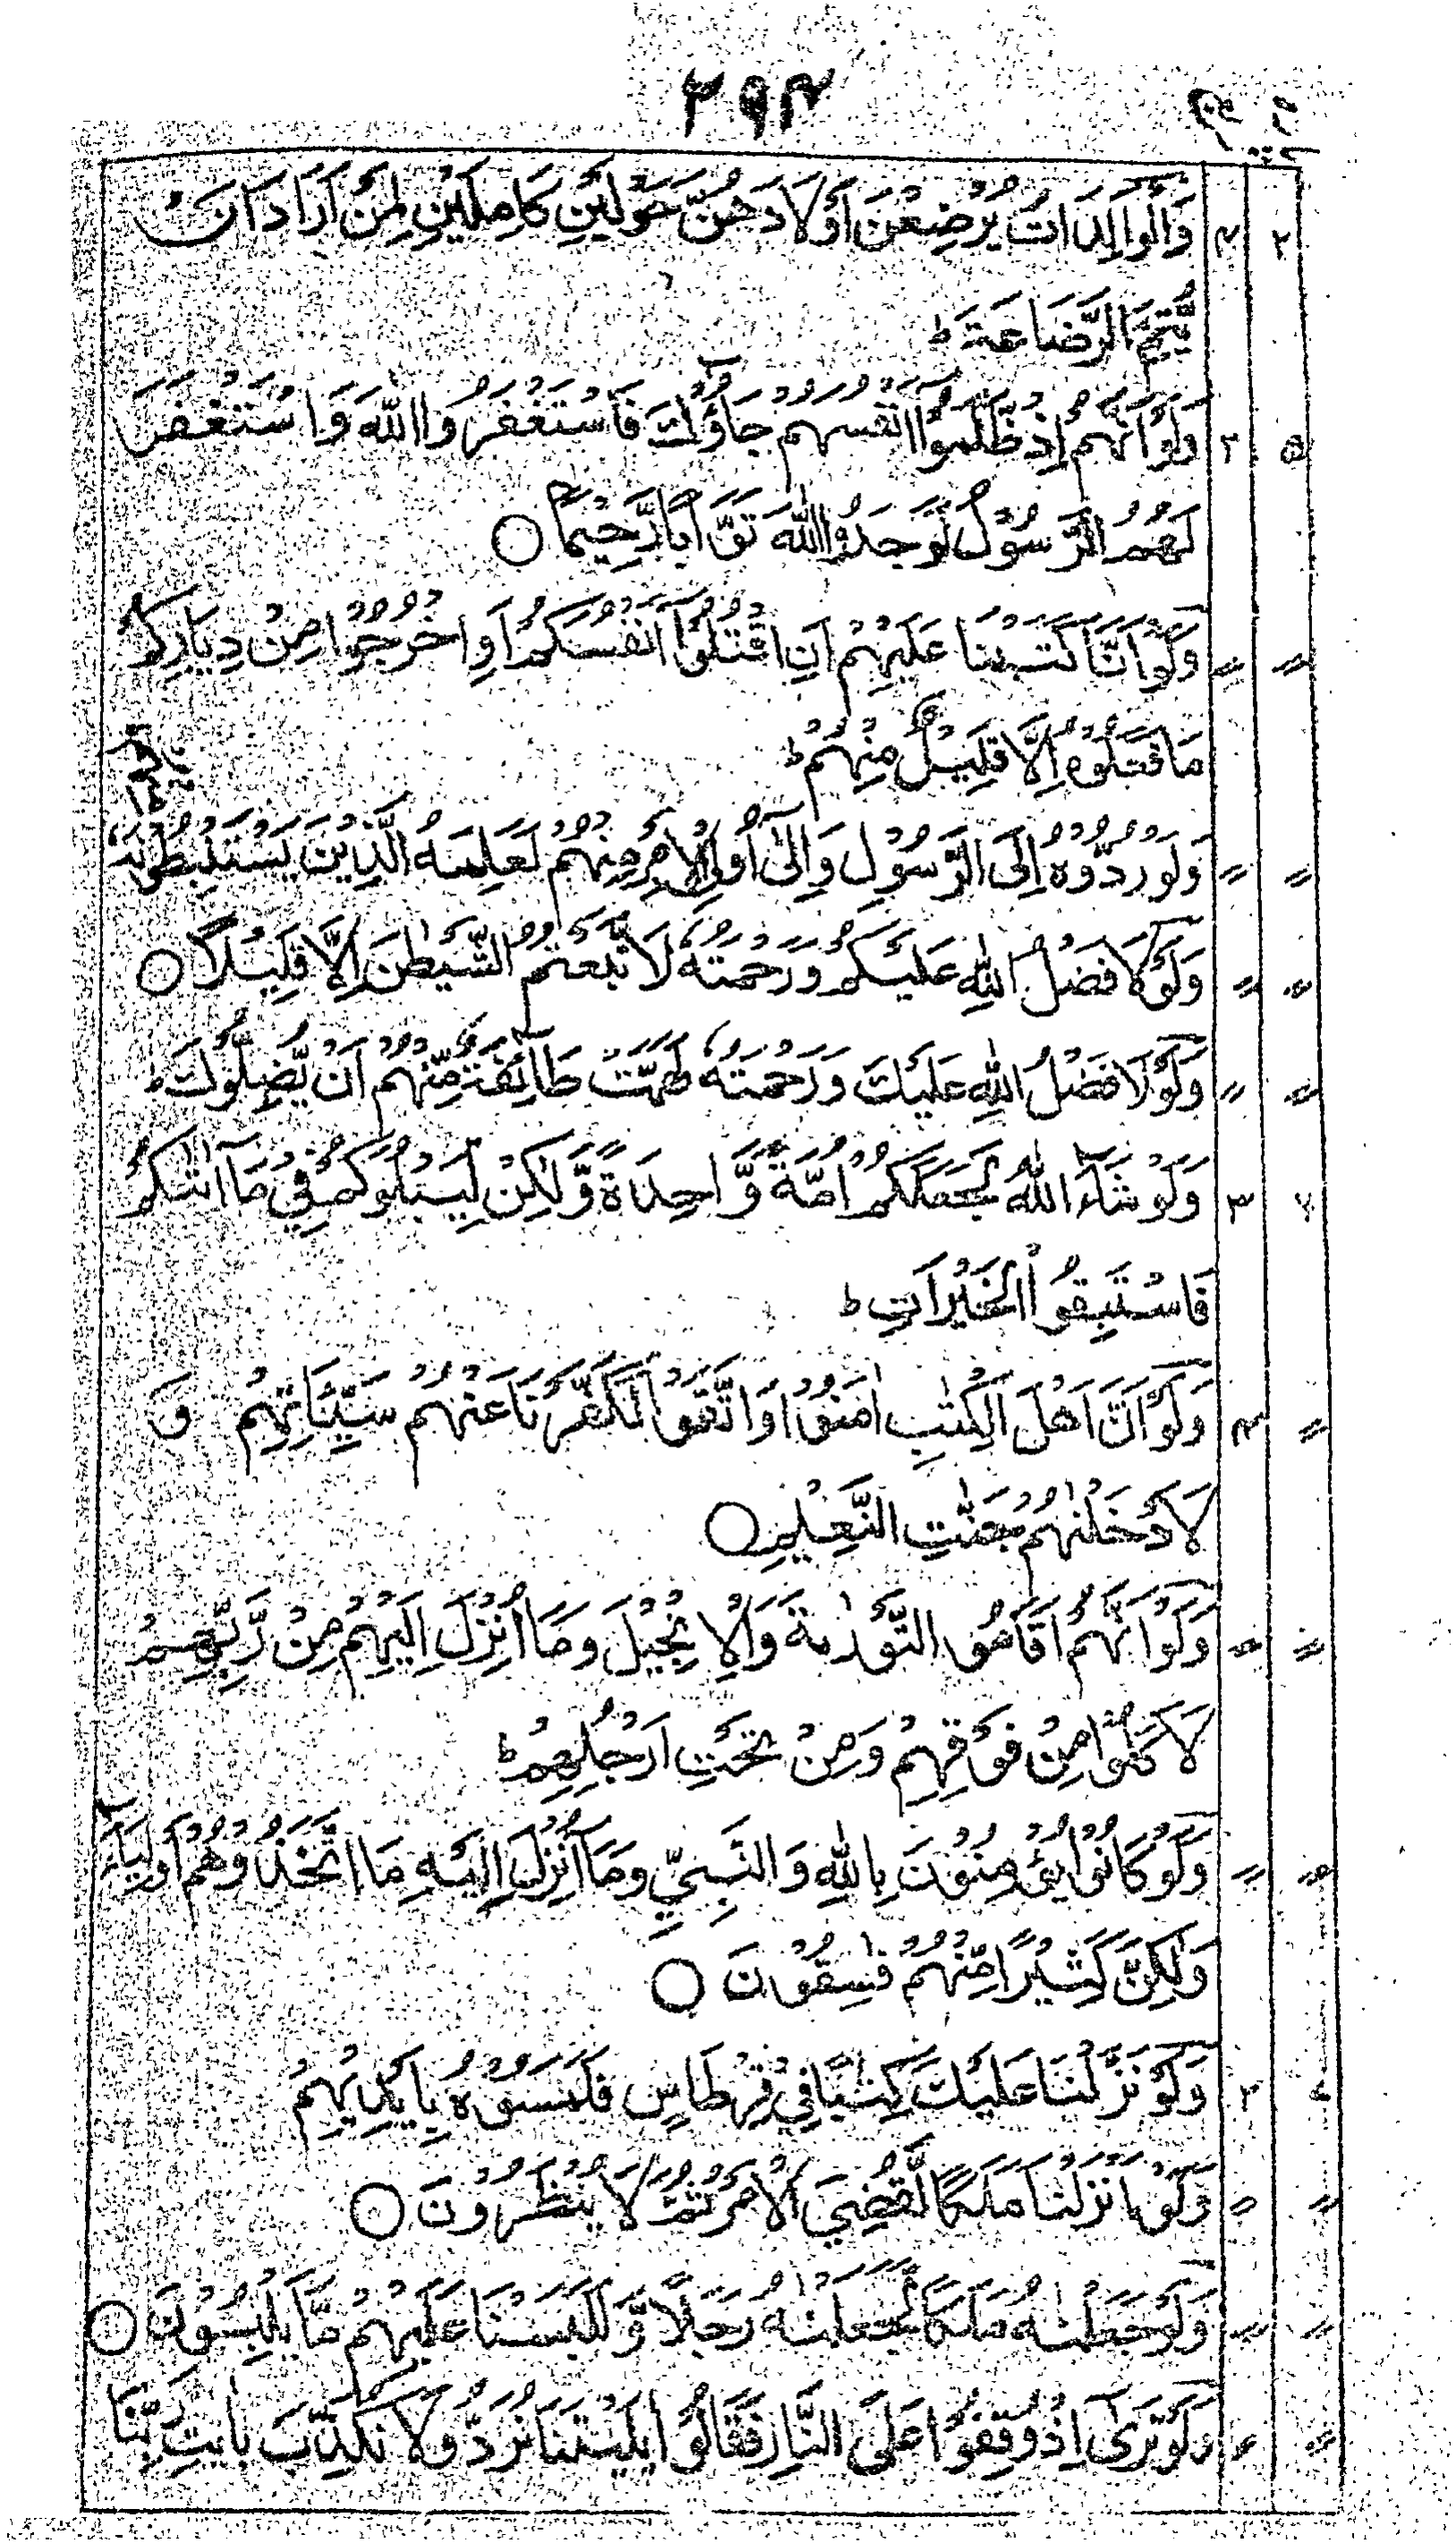 ۲۹۴
وَالْوَالِدَاتُ يُرْضِعْنَ أَوْلَادَهُنَّ حَوْلَيْنِ كَامِلَيْنِ لِمَنْ أَرَادَ اَنْ ۴ ۲
يُّتِمَّ الرَّضَاعَةَ ط
وَلَوْ اَنَّهُمْ اِذْ ظَّلَمُوْا اَنْفُسَهُمْ جَآؤُكَ فَاسْتَغْفَرُوا اللّٰهَ وَاسْتَغْفَرَ ۲ ۵
لَهُمُ الرَّسُوْلُ لَوَجَدُوا اللّٰهَ تَوَّابًا رَّحِيْمًا ○
وَلَوْ اَنَّا كَتَبْنَا عَلَيْهِمْ اَنِ اقْتُلُوْٓا اَنْفُسَكُمْ اَوِ اخْرُجُوْا مِنْ دِيَارِكُمْ 〃 〃
مَا فَعَلُوْهُ اِلَّا قَلِيْلٌ مِنْهُمْ ط
وَلَوْ رَدُّوْهُ اِلَى الرَّسُوْلِ وَاِلٰٓى اُولِى الْاَمْرِ مِنْهُمْ لَعَلِمَهُ الَّذِيْنَ يَسْتَنْبِطُوْنَهٗ 〃 〃
وَلَوْلَا فَضْلُ اللّٰهِ عَلَيْكُمْ وَرَحْمَتُهٗ لَاتَّبَعْتُمُ الشَّيْطٰنَ اِلَّا قَلِيْلًا ○ 〃 〃
وَلَوْلَا فَضْلُ اللّٰهِ عَلَيْكَ وَرَحْمَتُهٗ لَهَمَّتْ طَآئِفَةٌ مِّنْهُمْ اَنْ يُّضِلُّوْكَ ط 〃 〃
وَلَوْ شَآءَ اللّٰهُ لَجَعَلَكُمْ اُمَّةً وَّاحِدَةً وَّلٰكِنْ لِيَبْلُوَكُمْ فِيْ مَآ اٰتٰىكُمْ ۳ ۶
فَاسْتَبِقُوا الْخَيْرَاتِ ط
وَلَوْ اَنَّ اَهْلَ الْكِتٰبِ اٰمَنُوْا وَاتَّقَوْا لَكَفَّرْنَا عَنْهُمْ سَيِّئَاتِهِمْ وَ ۴ 〃
لَاَدْخَلْنٰهُمْ جَنّٰتِ النَّعِيْمِ ○
وَلَوْ اَنَّهُمْ اَقَامُوا التَّوْرٰىةَ وَالْاِنْجِيْلَ وَمَا اُنْزِلَ اِلَيْهِمْ مِنْ رَّبِّهِمْ 〃 〃
لَاَكَلُوْا مِنْ فَوْقِهِمْ وَمِنْ تَحْتِ اَرْجُلِهِمْ ط
وَلَوْ كَانُوْا يُؤْمِنُوْنَ بِاللّٰهِ وَالنَّبِيِّ وَمَآ اُنْزِلَ اِلَيْهِ مَا اتَّخَذُوْهُمْ اَوْلِيَآءَ 〃 〃
وَلٰكِنَّ كَثِيْرًا مِّنْهُمْ فٰسِقُوْنَ ○
وَلَوْ نَزَّلْنَا عَلَيْكَ كِتٰبًا فِيْ قِرْطَاسٍ فَلَمَسُوْهُ بِاَيْدِيْهِمْ ۲
وَلَوْ اَنْزَلْنَا مَلَكًا لَّقُضِيَ الْاَمْرُ ثُمَّ لَا يُنْظَرُوْنَ ○ 〃 〃
وَلَوْ جَعَلْنٰهُ مَلَكًا لَّجَعَلْنٰهُ رَجُلًا وَّلَلَبَسْنَا عَلَيْهِمْ مَّا يَلْبِسُوْنَ ○ 〃 〃
وَلَوْ تَرٰٓى اِذْ وُقِفُوْا عَلَى النَّارِ فَقَالُوْا يٰلَيْتَنَا نُرَدُّ وَلَا نُكَذِّبَ بِاٰيٰتِ رَبِّنَا 〃